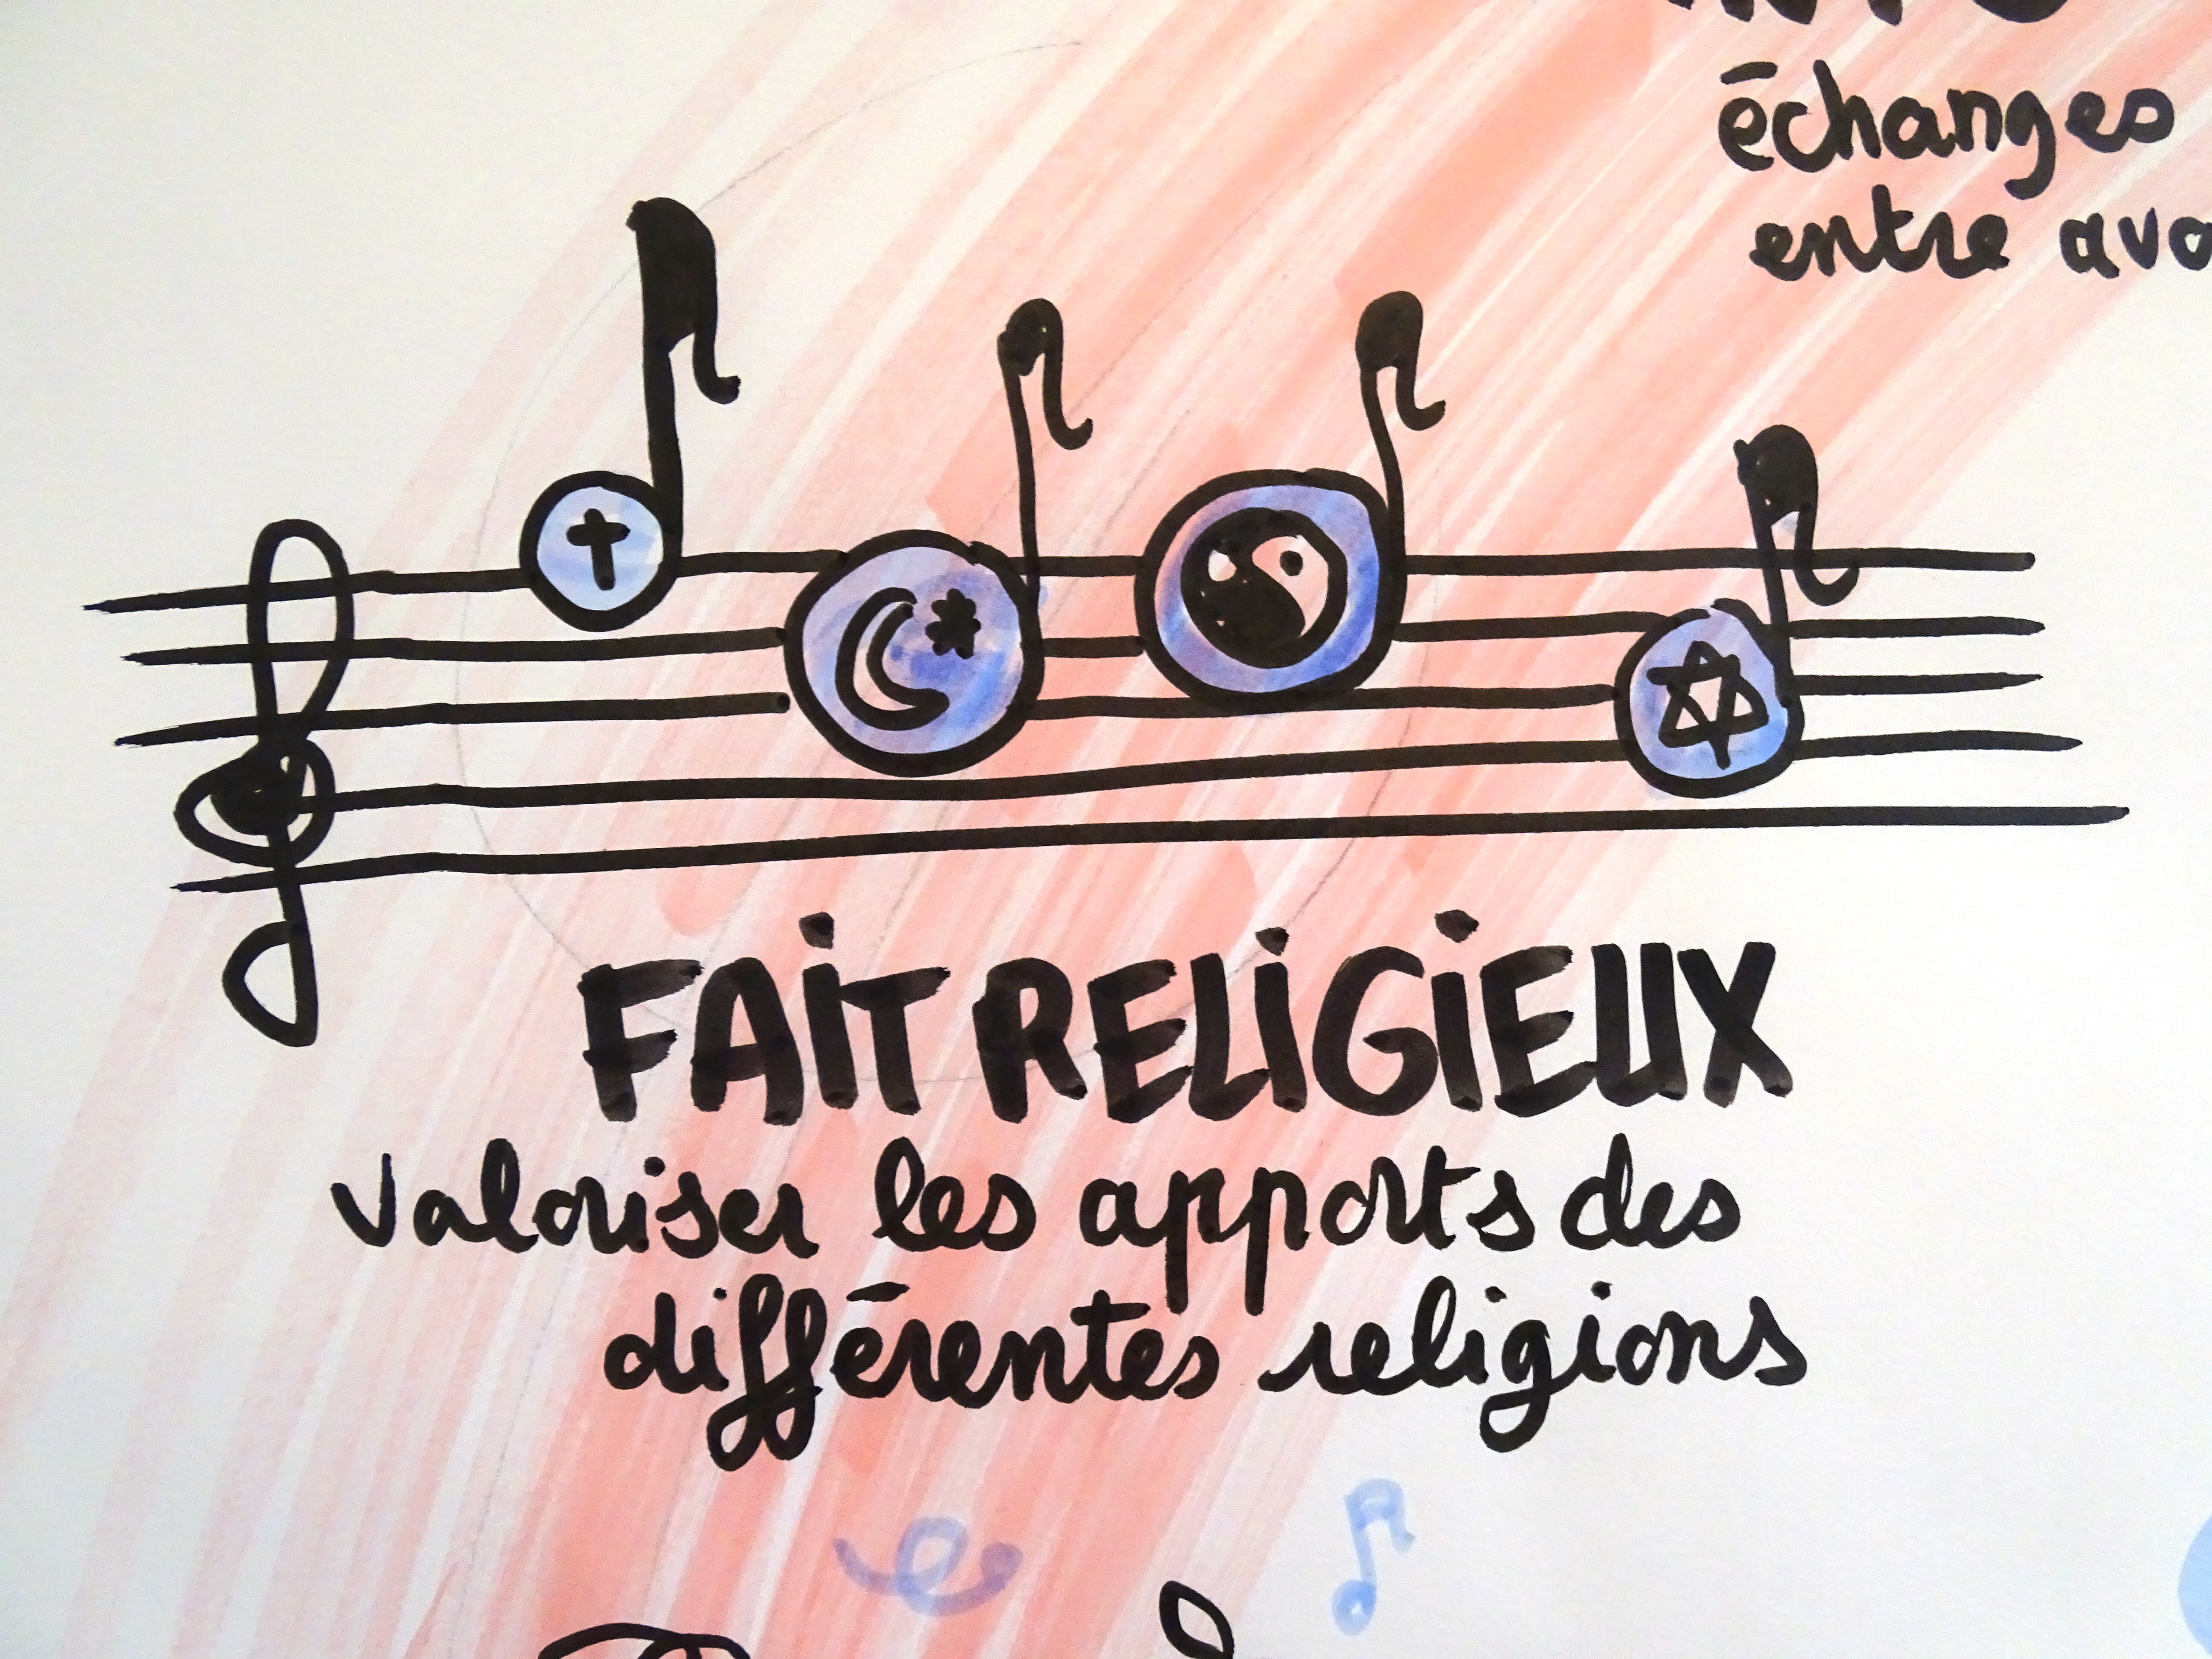 échanges
entre
FAiT RELiGiEUX
valoriser les apports des
différentes religions